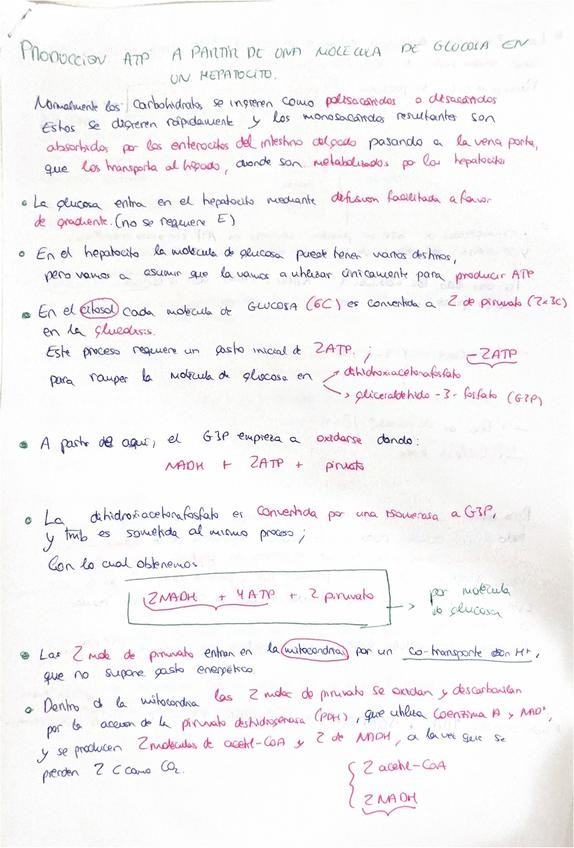 PRODUCCION ATP A PARTIR DE UNA MOLECULA DE GLUCOSA EN
UN HEPATOCITO.
Normalmente los Carbohidratos se ingieren como polisacáridos o disacáridos
Estos se digieren rápidamente y los monosacáridos resultantes son
absorbidos por los enterocitos del intestino delgado pasando a la vena porta,
que los transporta al hígado, donde son metabolizados por los hepatocitos
La glucosa entra en el hepatocito mediante difusion facilitada a favor
de gradiente. (no se requiere E)
En el hepatocito la molecula de glucosa puede tener varios destinos,
pero vamos a asumir que la vamos a utilizar únicamente para producir ATP
En el citosol cada molecula de GLUCOSA (6C) es convertida a 2 de piruvato (2x3C)
en la glucolisis.
Este proceso requiere un gasto inicial de 2ATP. ; -2ATP
para romper la molecula de glucosa en → dihidroxiacetonafosfato
→ gliceraldehido-3-fosfato (G3P)
A partir de aqui, el G3P empieza a oxidarse dando:
NADH + 2ATP + piruvato
La dihidroxiacetonafosfato es convertida por una isomerasa a G3P,
y tmb es sometida al mismo proceso;
Con lo cual obtenemos
2NADH + 4ATP + 2 piruvato → por molécula
de glucosa
Las 2 molec de piruvato entran en la mitocondria por un co-transporte con H+,
que no supone gasto energético.
Dentro d la mitocondria las 2 molec de piruvato se oxidan y descarboxilan
por la accion de la piruvato deshidrogenasa (PDH), que utiliza Coenzima A y NAD+,
y se producen 2 moléculas de acetil-CoA y 2 de NADH, a la vez que se
pierden 2 C como CO2.
2 acetil-CoA
2NADH